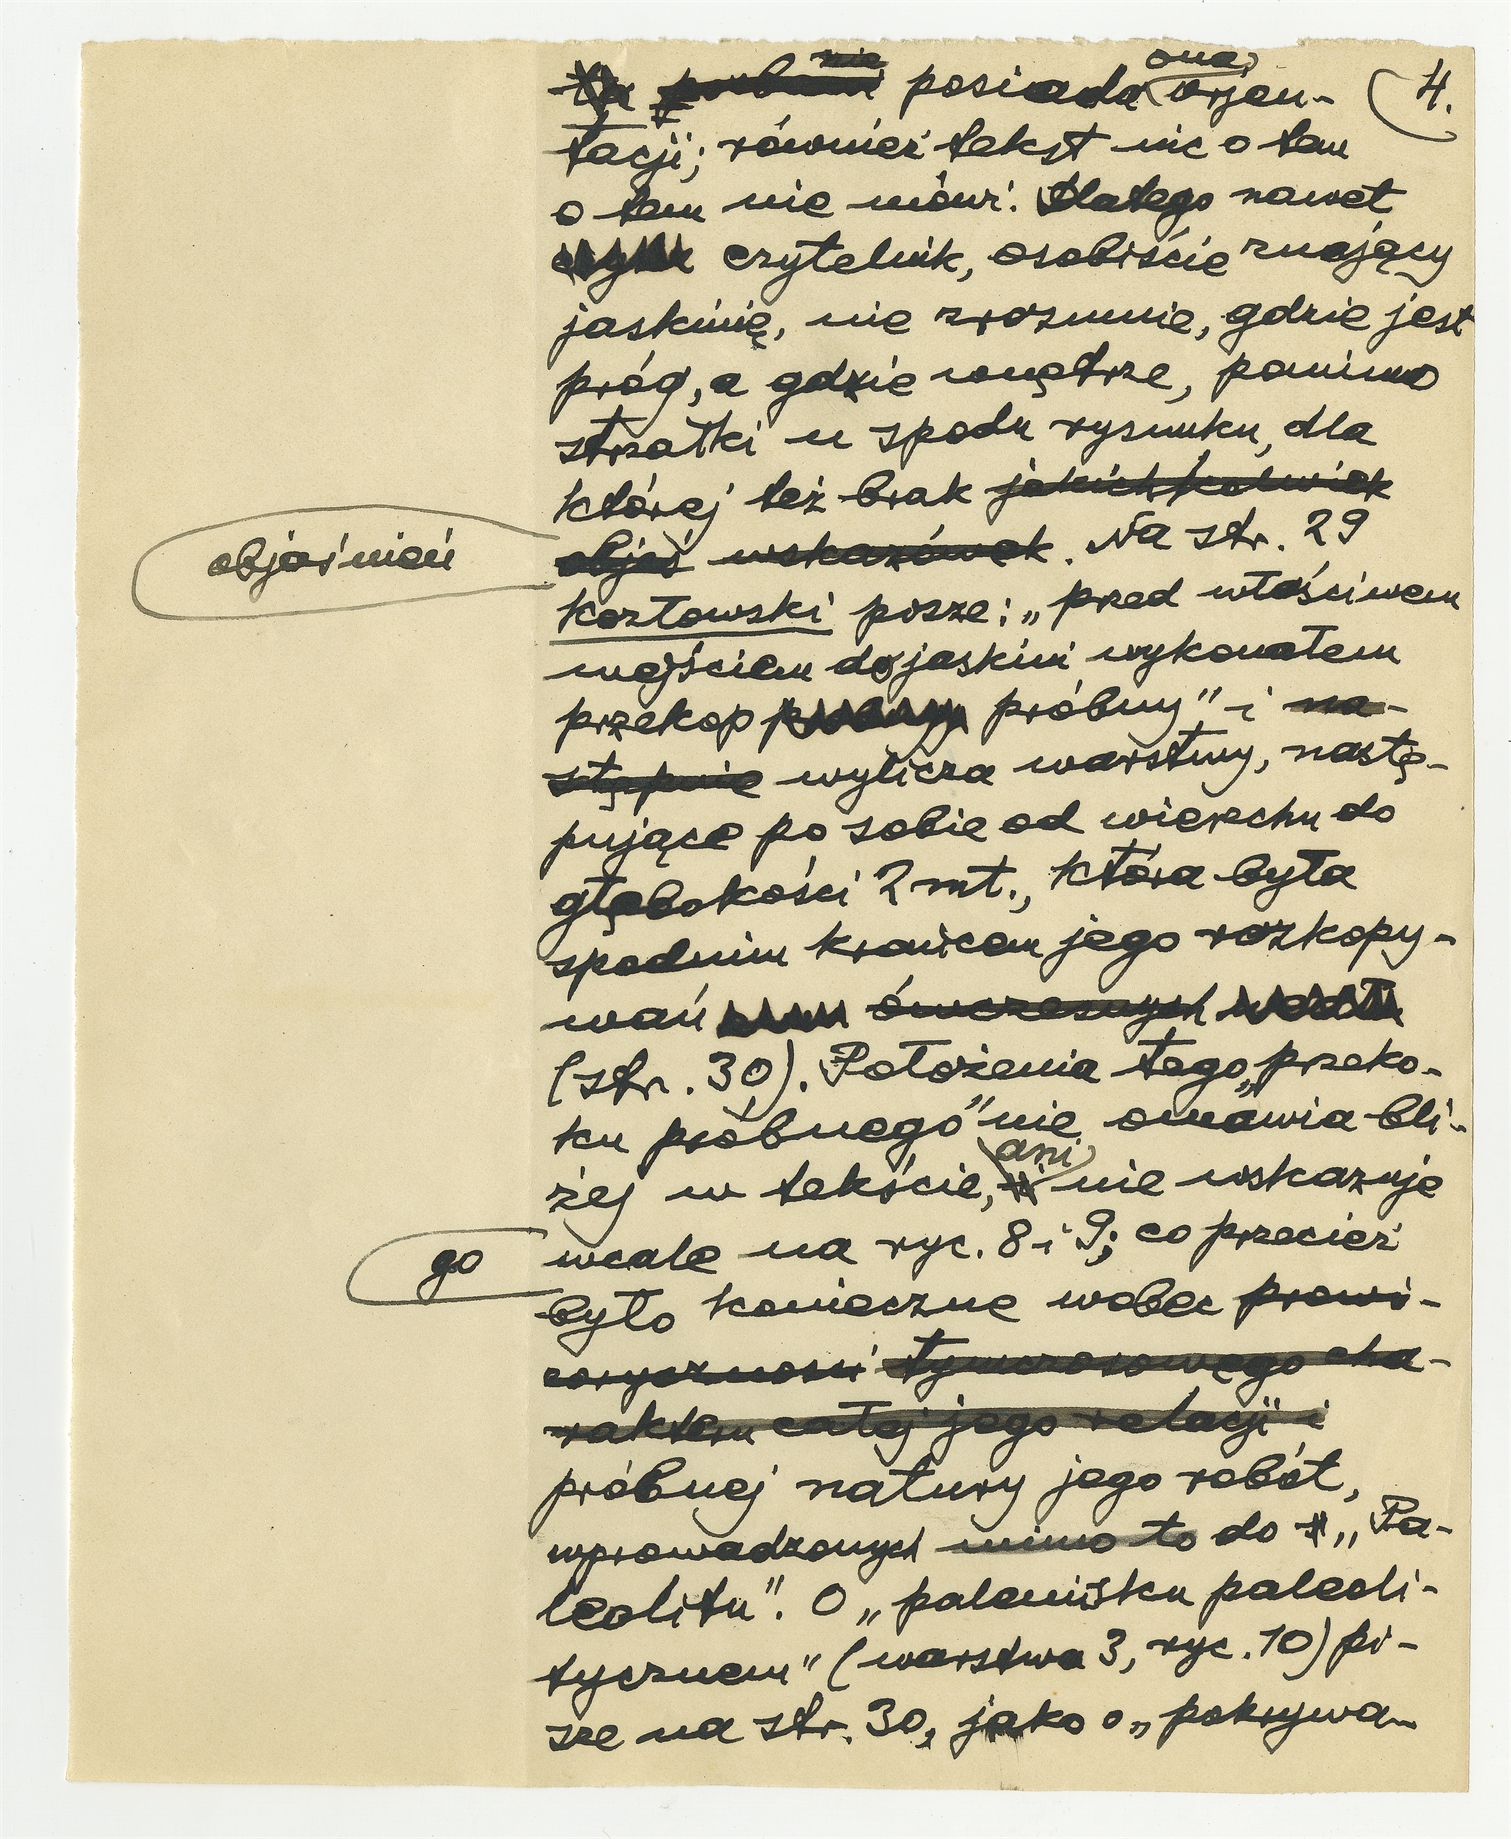 nie ona 4.
posiada orjen-
tacji; również tekst nic o tem
o tem nie mówi. Dlatego nawet
czytelnik, osobiście znający
jaskinię, nie zrozumie, gdzie jest
próg, a gdzie wnętrze, pomimo
strzałki u spodu rysunku, dla
której też brak jakichkolwiek
objaśnień objaś wskazówek. Na str. 29
Kozłowski pisze: „przed właściwem
wejściem do jaskini wykonałem
przekop próbny" i na-
stępnie wylicza warstwy, nastę-
pujące po sobie od wierzchu do
głębokości 2 mt., która była
spodnim krańcem jego rozkopy-
wań ówczesnych
(str. 30). Położenia tego „przeko-
ku próbnego" nie omawia bli-
żej w tekście, ani nie wskazuje
go wcale na ryc. 8 i 9; co przecież
było konieczne wobec prowi-
zoryczności tymczasowego cha-
rakteru całej jego relacji i
próbnej natury jego robót,
wprowadzonych mimo to do „Pa-
leolitu". O „palenisku paleoli-
tycznem" (warstwa 3, ryc. 10) pi-
sze na str. 30, jako o „pokrywa-